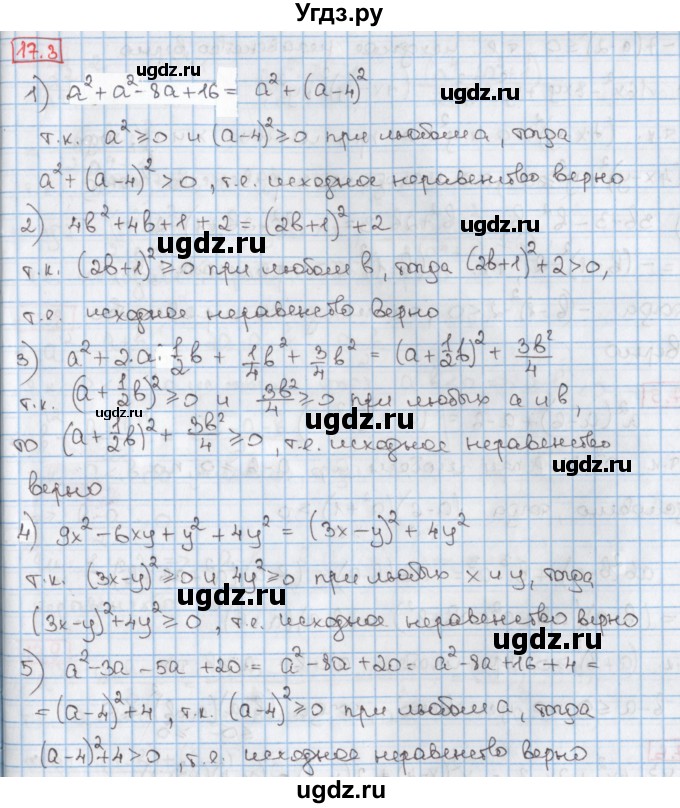 Угдз.ру
17.3
ugdz.ru ugdz.ru
1) a² + a² - 8a + 16 = a² + (a-4)²
т.к. a² ≥ 0 и (a-4)² ≥ 0 при любом a, тогда
a² + (a-4)² > 0, т.е. исходное неравенство верно
2) 4b² + 4b + 1 + 2 = (2b+1)² + 2
ugdz.ru ugdz.ru
т.к. (2b+1)² ≥ 0 при любом b, тогда (2b+1)² + 2 > 0,
т.е. исходное неравенство верно
ugdz.ru
3) a² + 2·a·1/2b + 1/4b² + 3/4b² = (a + 1/2b)² + 3b²/4
т.к. (a + 1/2b)² ≥ 0 и 3b²/4 ≥ 0 при любых a и b,
ugdz.ru
то (a + 1/2b)² + 3b²/4 ≥ 0, т.е. исходное неравенство
ugdz.ru
верно
4) 9x² - 6xy + y² + 4y² = (3x-y)² + 4y²
т.к. (3x-y)² ≥ 0 и 4y² ≥ 0 при любых x и y, тогда
ugdz.ru
(3x-y)² + 4y² ≥ 0, т.е. исходное неравенство верно
ugdz.ru
5) a² - 3a - 5a + 20 = a² - 8a + 20 = a² - 8a + 16 + 4 =
= (a-4)² + 4, т.к. (a-4)² ≥ 0 при любом a, тогда
ugdz.ru ugdz.ru
(a-4)² + 4 > 0, т.е. исходное неравенство верно
ugdz.ru ugdz.ru